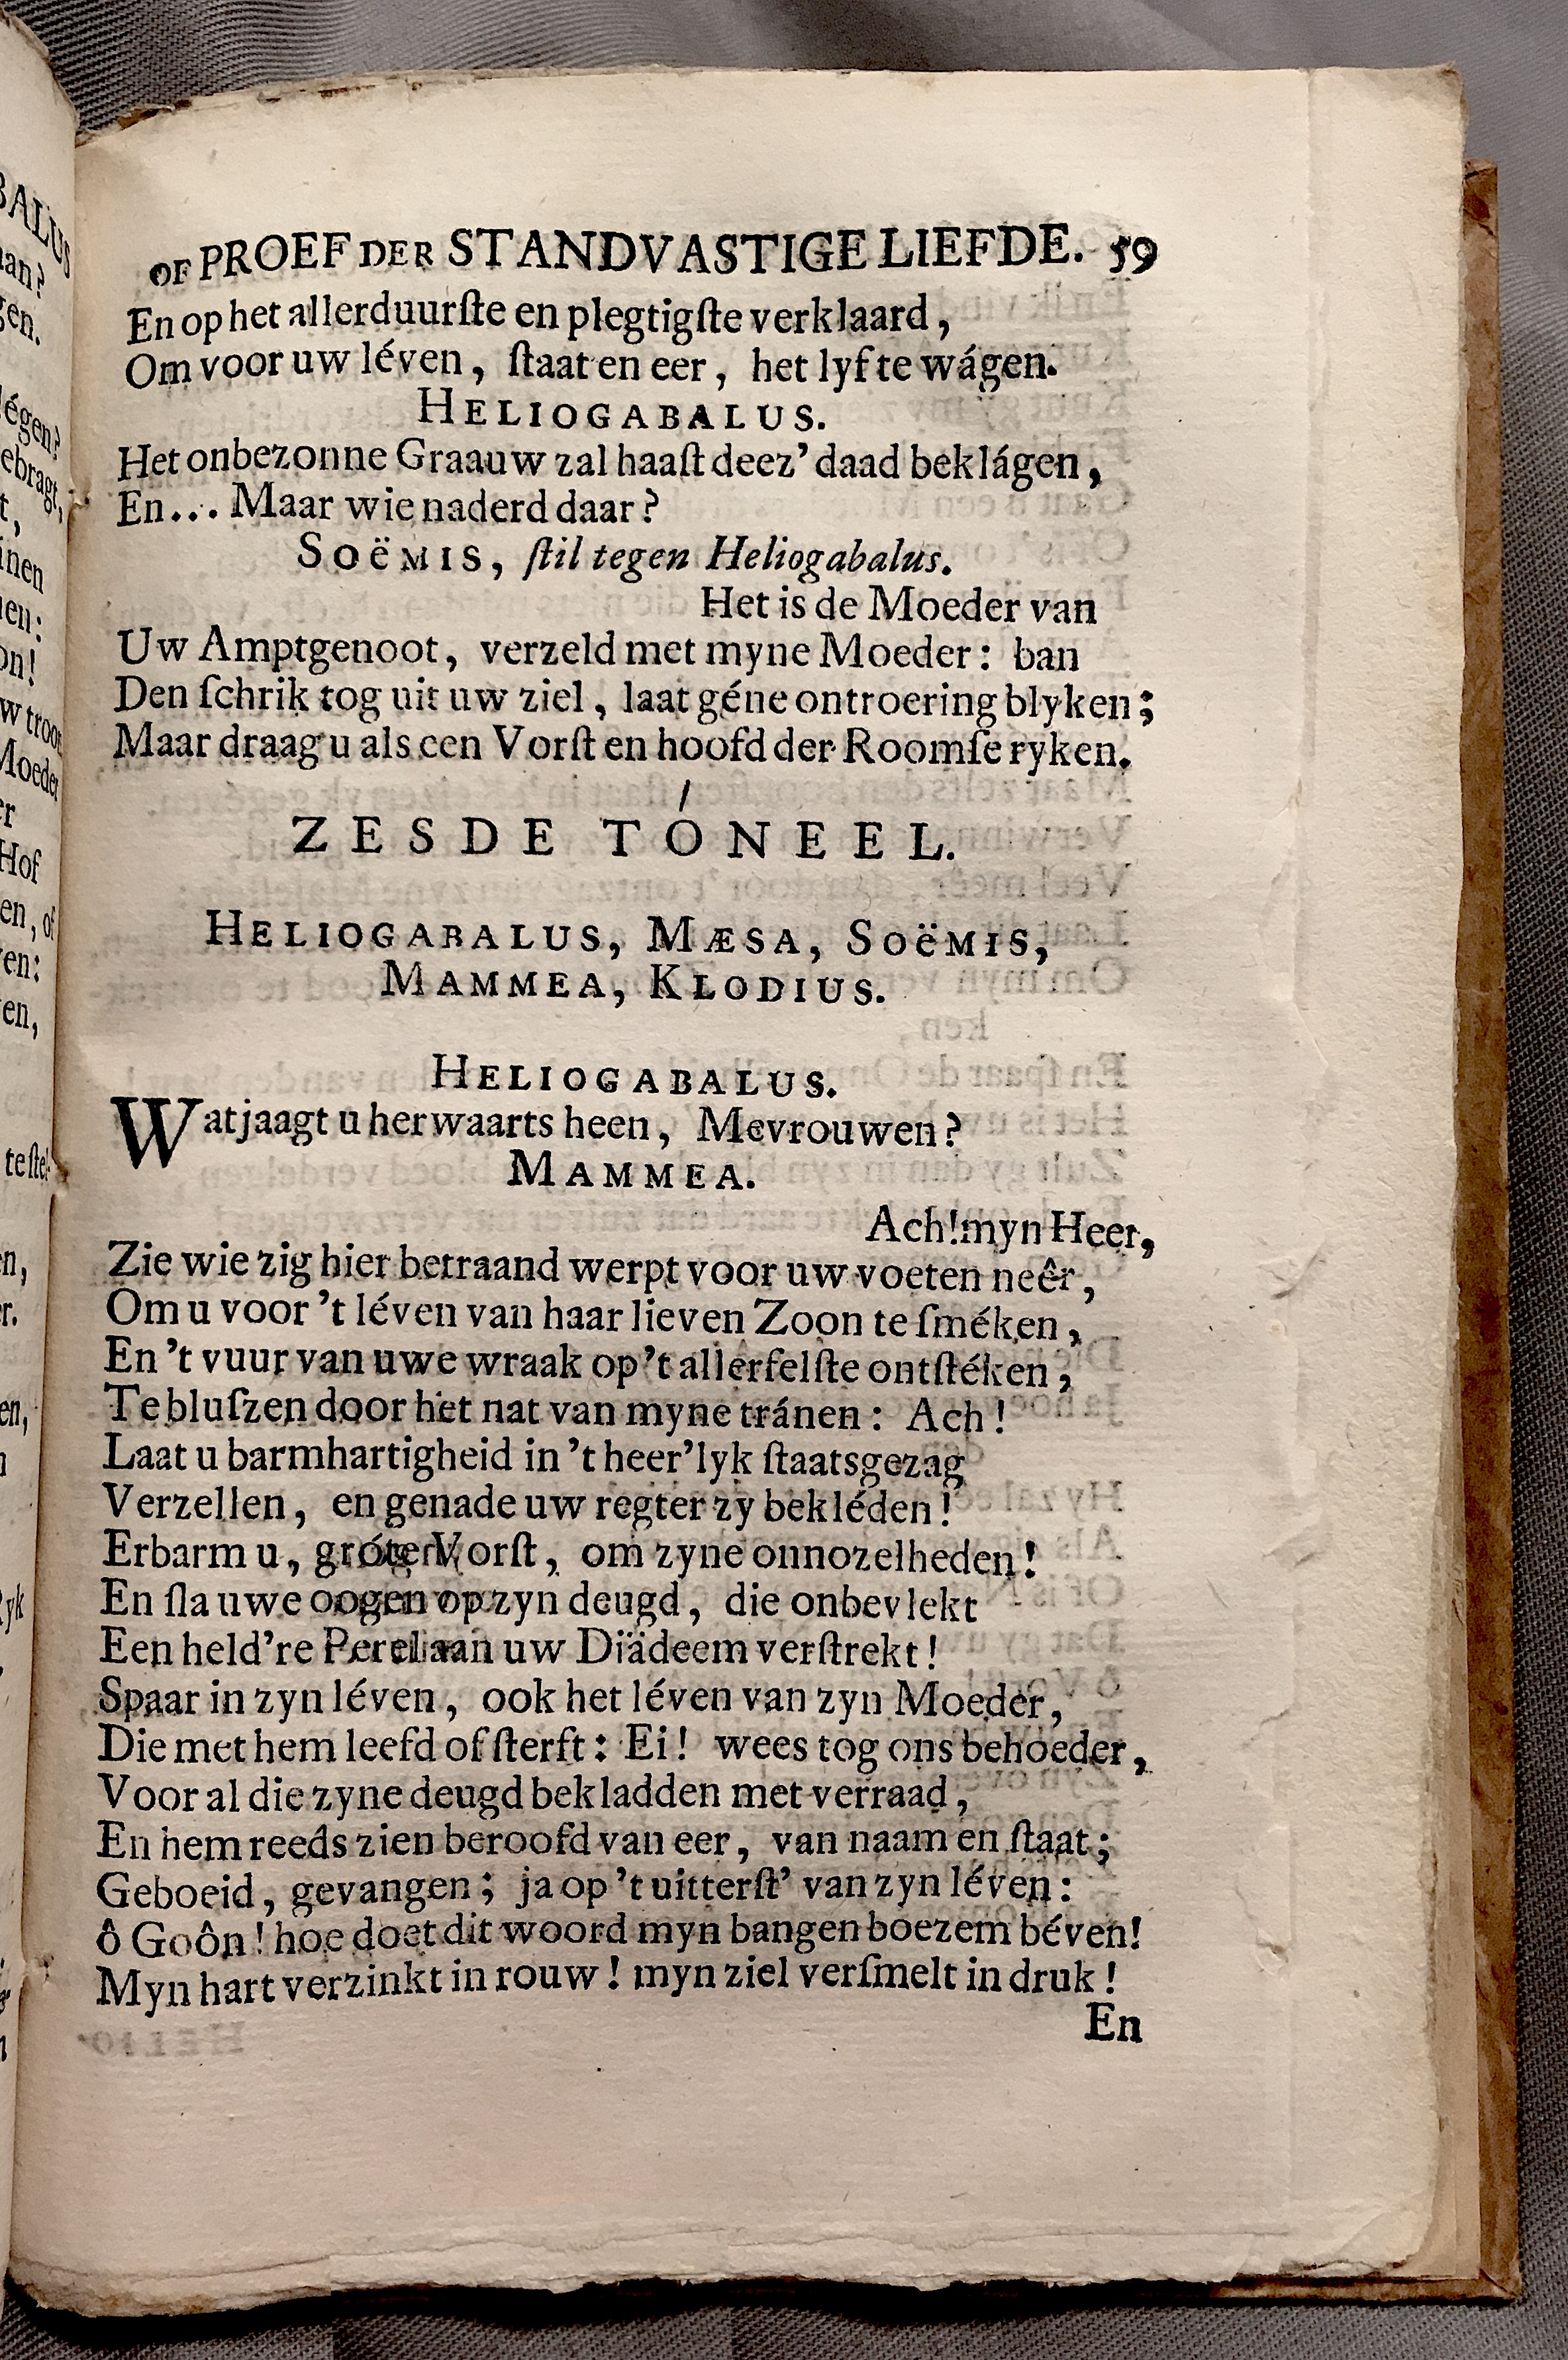 OF PROEF DER STANDVASTIGE LIEFDE. 59
En op het allerduurſte en plegtigſte verklaard,
Om voor uw léven, ſtaat en eer, het lyf te wágen.
HELIOGABALUS.
Het onbezonne Graauw zal haaſt deez' daad beklágen,
En... Maar wie naderd daar?
SOËMIS, ſtil tegen Heliogabalus.
Het is de Moeder van
Uw Amptgenoot, verzeld met myne Moeder: ban
Den ſchrik tog uit uw ziel, laat géne ontroering blyken;
Maar draag u als een Vorſt en hoofd der Roomſe ryken.
ZESDE TÓNEEL.
HELIOGABALUS, MÆSA, SOËMIS,
MAMMEA, KLODIUS.
HELIOGABALUS.
Wat jaagt u herwaarts heen, Mevrouwen?
MAMMEA.
Ach! myn Heer,
Zie wie zig hier betraand werpt voor uw voeten neêr,
Om u voor 't léven van haar lieven Zoon te ſméken,
En 't vuur van uwe wraak op 't allerfelſte ontſtéken,
Te bluſzen door het nat van myne tránen: Ach!
Laat u barmhartigheid in 't heer'lyk ſtaatsgezag
Verzellen, en genade uw regter zy bekléden!
Erbarm u, gróten Vorſt, om zyne onnozelheden!
En ſla uwe oogen op zyn deugd, die onbevlekt
Een held're Perel aan uw Diädeem verſtrekt!
Spaar in zyn léven, ook het léven van zyn Moeder,
Die met hem leefd of ſterft: Ei! wees tog ons behoeder,
Voor al die zyne deugd bekladden met verraad,
En hem reeds zien beroofd van eer, van naam en ſtaat;
Geboeid, gevangen; ja op 't uitterſt' van zyn léven:
ô Goôn! hoe doet dit woord myn bangen boezem béven!
Myn hart verzinkt in rouw! myn ziel verſmelt in druk!
En